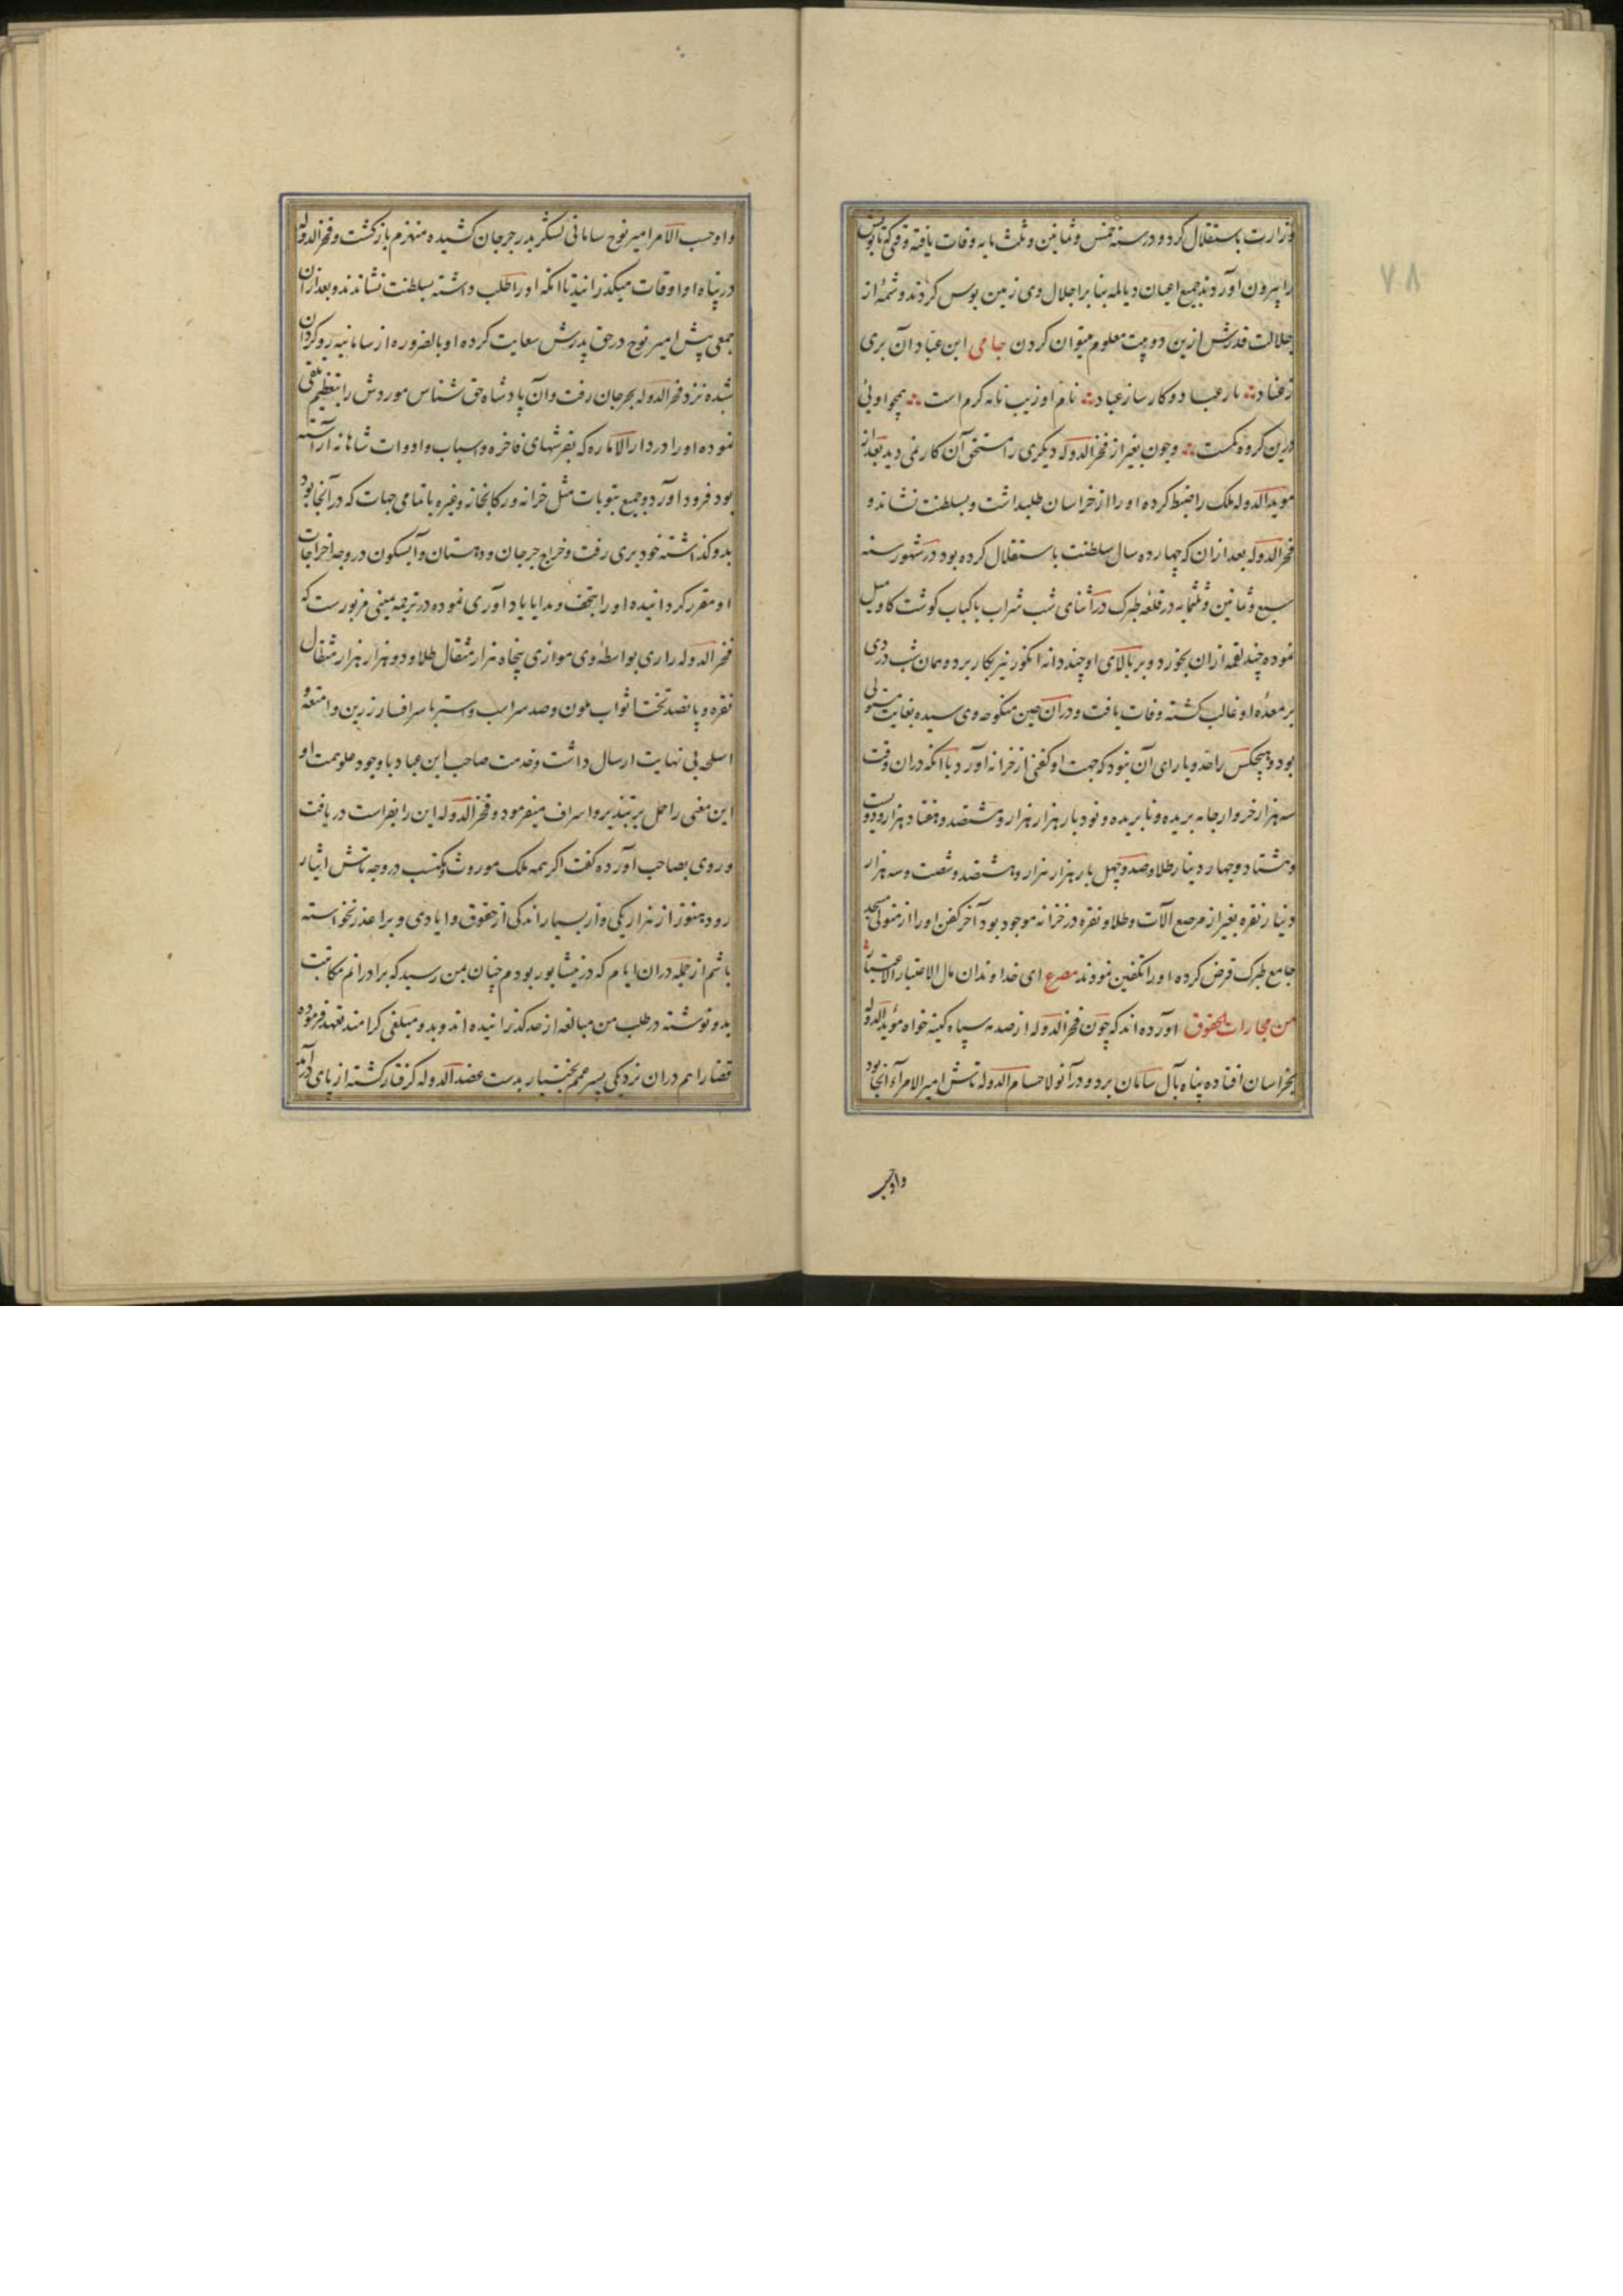 ٧٨
وزارت باستقلال کرد و در سنه خمس و ثمانین و ثلث مایه وفات یافته وقتی که تابوتش
را بیرون آوردند جمیع اعیان دیالمه بنا بر اجلال وی زمین بوس کردند و شمهٔ از
جلالت قدرش ازین دو بیت معلوم میتوان کردن جامی ابن عباد آن بری
ز عناد ∴ یار عباد و کار ساز عباد ∴ نام او زیب نامه کرم است ∴ همچو اویی
درین کروه کمست ∴ و چون بغیر از فخرالدوله دیکری را مستحق آن کار نمی دید بعد از
مویدالدوله ملک را ضبط کرده او را از خراسان طلبداشت و بسلطنت نشاند و
فخرالدوله بعد ازان که چهارده سال سلطنت باستقلال کرده بود در شهور سنه
سبع و ثمانین و ثلثمایه در قلعه طبرک در اثنای شب شراب با کباب کوشت کاو میل
نموده چند لقمه ازان بخورد و بر بالای او چند دانه انکور نیز بکار برد و همان شب دردی
بر معدهٔ او غالب کشته وفات یافت و دران حین منکوحه وی سیده بغایت مستولی
بود و هیچکس را حد و یارای آن نبود که جهت او کفنی از خزانه آورد با آنکه دران وقت
سه هزار خروار جامه بریده و نابریده و نود بار هزار هزار و هشتصد و هفتاد هزار و دویست
و هشتاد و چهار دینار طلا و صد و چهل بار هزار هزار و هشتصد و شصت و سه هزار
دینار نقره بغیر از مرصع آلات و طلا و نقره در خزانه موجود بود آخر کفن او را از متولی مسجد
جامع طبرک قرض کرده او را تکفین نمودند مصرع ای خداوندان مال الاعتبار الاعتبار
من مجارات الحقوق آورده اند که چون فخرالدوله از صدمه سپاه کینه خواه مؤیدالدوله
بخراسان افتاده پناه بآل سامان برد و در آنولا حسام الدوله تاش امیرالامراء آنجا بود
و او حسب
و او حسب الامر امیر نوح سامانی لشکر بدر جرجان کشیده منهزم بازکشت و فخرالدوله
در پناه او اوقات میکذرانید تا آنکه او را طلب داشته بسلطنت نشاندند و بعد ازان
جمعی پیش امیر نوح در حق پدرش سعایت کرده او بالضروره از سامانیه روکردان
شده نزد فخرالدوله بجرجان رفت و آن پادشاه حق شناس موردش را بتعظیم تلقی
نموده او را در دارالاماره که بفرشهای فاخره و اسباب و ادوات شاهانه آراسته
بود فرود آورد و جمیع بیوتات مثل خزانه و رکابخانه و غیره با تمامی جهات که در آنجا بود
بدو کذاشته خود بری رفت و خراج جرجان و دهستان و آبسکون در وجه اخراجات
او مقرر کردانیده او را بتحف و هدایا یادآوری نموده در ترجمه یمینی مزبورست که
فخرالدوله را ری بواسطهٔ وی موازی پنجاه هزار مثقال طلا و دو هزار هزار مثقال
نقره و پانصد تخت اثواب ملون و صد سر اسب و استر با سرافسار زرین و امتعه و
اسلحه بی نهایت ارسال داشت و خدمت صاحب ابن عباد با وجود علو همت او
این معنی را حمل بر تبذیر و اسراف میفرمود و فخرالدوله این را بفراست دریافت
و روی بصاحب آورده کفت اکر همه ملک موروث و مکتسب در وجه تاش ایثار
رود هنوز از هزار یکی و از بسیار اندکی از حقوق و ایادی ویرا عذر نخواسته
باشم از جمله دران ایام که در نیشابور بودم چنان بمن رسید که برادرانم مکاتبت
بدو نوشته در طلب من مبالغه از حد کذرانیده اند و بدو مبلغی کرامند تعهد فرموده
قضا را هم دران نزدیکی پسر عمم بختیار بدست عضدالدوله کرفتار کشته از پای درآمد